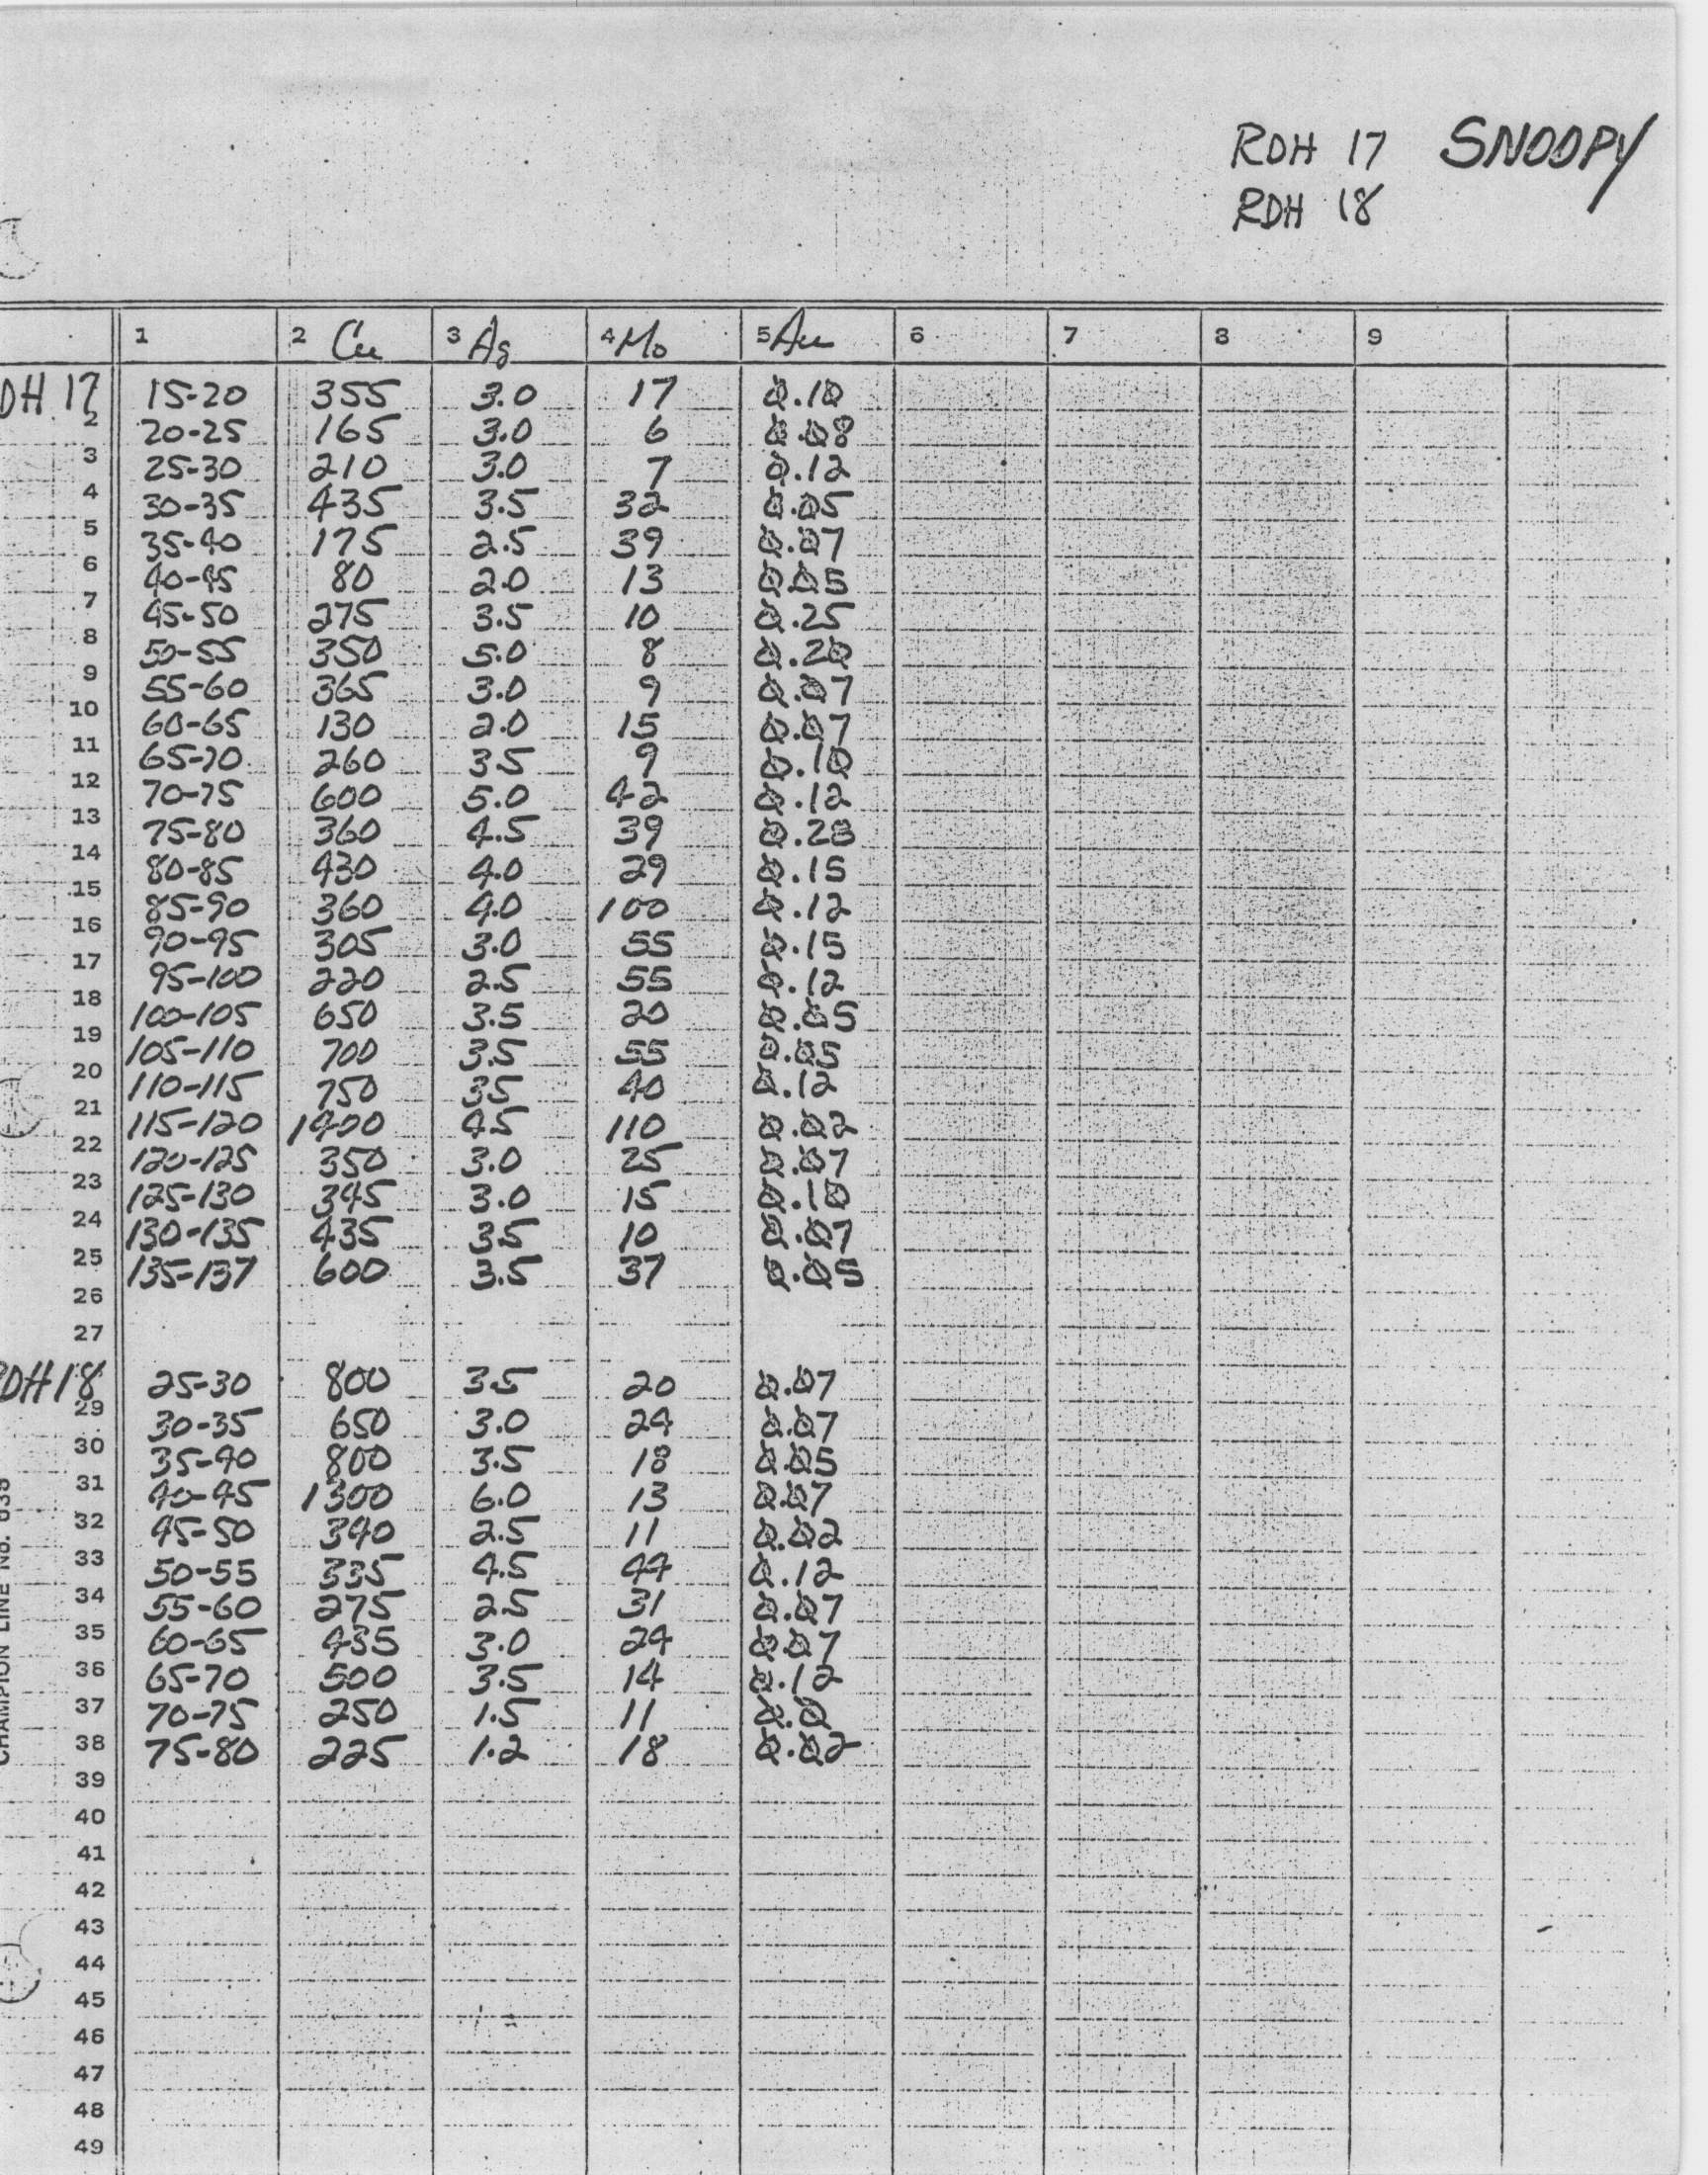 RDH 17 SNOOPY
RDH 18
1 2 Cu 3 Ag 4 Mo 5 Au 6 7 8 9
DH 17 15-20 355 3.0 17 0.10
2 20-25 165 3.0 6 0.08
3 25-30 210 3.0 7 0.12
4 30-35 435 3.5 32 0.05
5 35-40 175 2.5 39 0.07
6 40-45 80 2.0 13 0.05
7 45-50 275 3.5 10 0.25
8 50-55 350 5.0 8 0.20
9 55-60 365 3.0 9 0.07
10 60-65 130 2.0 15 0.07
11 65-70 260 3.5 9 0.10
12 70-75 600 5.0 42 0.12
13 75-80 360 4.5 39 0.28
14 80-85 430 4.0 29 0.15
15 85-90 360 4.0 100 0.12
16 90-95 305 3.0 55 0.15
17 95-100 220 2.5 55 0.12
18 100-105 650 3.5 20 0.05
19 105-110 700 3.5 55 0.05
20 110-115 750 3.5 40 0.12
21 115-120 1400 4.5 110 0.02
22 120-125 350 3.0 25 0.07
23 125-130 345 3.0 15 0.10
24 130-135 435 3.5 10 0.07
25 135-137 600 3.5 37 0.05
26
27
RDH 18 25-30 800 3.5 20 0.07
29 30-35 650 3.0 24 0.07
30 35-40 800 3.5 18 0.05
31 40-45 1300 6.0 13 0.07
32 45-50 340 2.5 11 0.02
33 50-55 335 4.5 44 0.12
34 55-60 275 2.5 31 0.07
35 60-65 435 3.0 24 0.07
36 65-70 500 3.5 14 0.12
37 70-75 250 1.5 11 0.0
38 75-80 225 1.2 18 0.02
39
40
41
42
43
44
45
46
47
48
49
CHAMPION LINE NO.